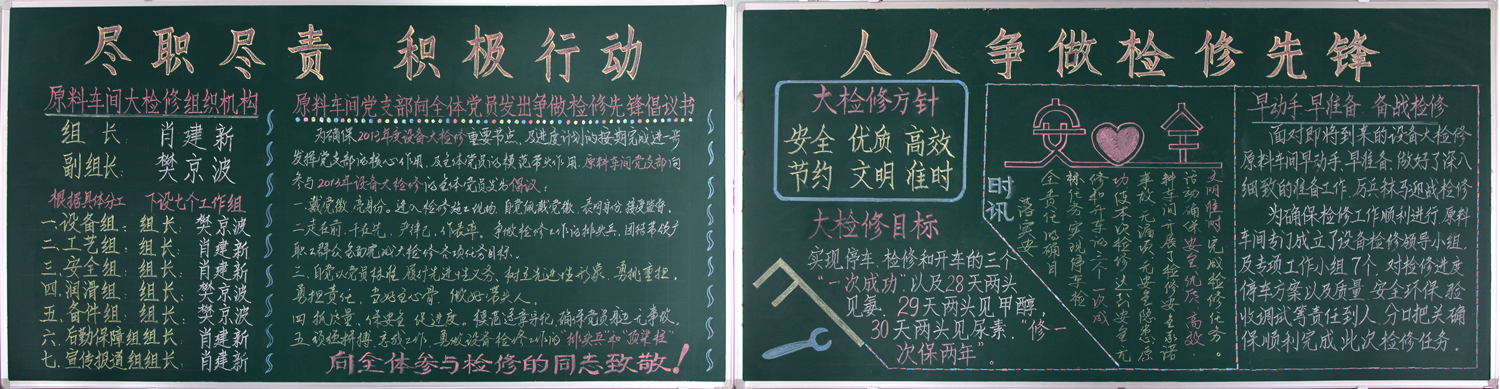 尽职尽责 积极行动
原料车间大检修组织机构
组 长: 肖建新
副组长: 樊京波
根据具体分工 下设七个工作组
一.设备组: 组长: 樊京波
二.工艺组: 组长: 肖建新
三.安全组: 组长: 肖建新
四.润滑组: 组长: 樊京波
五.备件组: 组长: 樊京波
六.后勤保障组组长: 肖建新
七.宣传报道组组长: 肖建新
原料车间党支部向全体党员发出争做检修先锋倡议书
为确保2013年度设备大检修重要节点,及进度计划的按期完成进一步
发挥党支部的核心作用,及全体党员的模范带头作用,原料车间党支部向
参与2013年设备大检修的全体党员发出倡议:
一.戴党徽,亮身份。进入检修施工现场,自觉佩戴党徽,
二.走在前,干在先,严律己,作表率。争做检修工作的排头兵,团结带领广
职工群众全面完成大检修各项任务目标。
三.自觉以党员标准,履行先进性义务,树立先进性形象,勇挑重担,
勇担责任,当好主心骨,做好带头人。
四.抓质量,保安全,促进度。模范遵章守纪,确保党员身边无事故。
五.顽强拼搏,忘我工作,勇做设备检修工作的"排头兵"和"顶梁柱"
向全体参与检修的同志致敬!
人人争做检修先锋
大检修方针
安全 优质 高效
节约 文明 准时
大检修目标
实现停车.检修和开车的三个
"一次成功",以及28天两头
见氨,29天两头见甲醇,
30天两头见尿素,"修一
次保两年"。
时讯
安 全
文明准时完成检修任务。
活动确保安全.优质.高效.
种车间开展了检修安全承诺
事故.无漏项.无安全隐患原
功使本次检修达到安全无
修和开车的三个一次成
标任务实现停车检
全责任明确目
落实安
早动手 早准备 备战检修
面对即将到来的设备大检修
原料车间早动手,早准备,做好了深入
细致的准备工作,厉兵秣马迎战检修
为确保检修工作顺利进行,原料
车间专门成立了设备检修领导小组,
及专项工作小组7个,对检修进度
停车方案以及质量.安全环保.验
收调试等责任到人,分口把关确
保顺利完成此次检修任务。